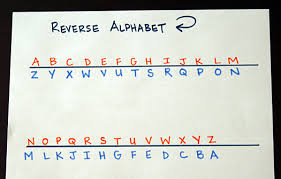 REVERSE ALPHABET
A B C D E F G H I J K L M
Z Y X W V U T S R Q P O N
N O P Q R S T U V W X Y Z
M L K J I H G F E D C B A